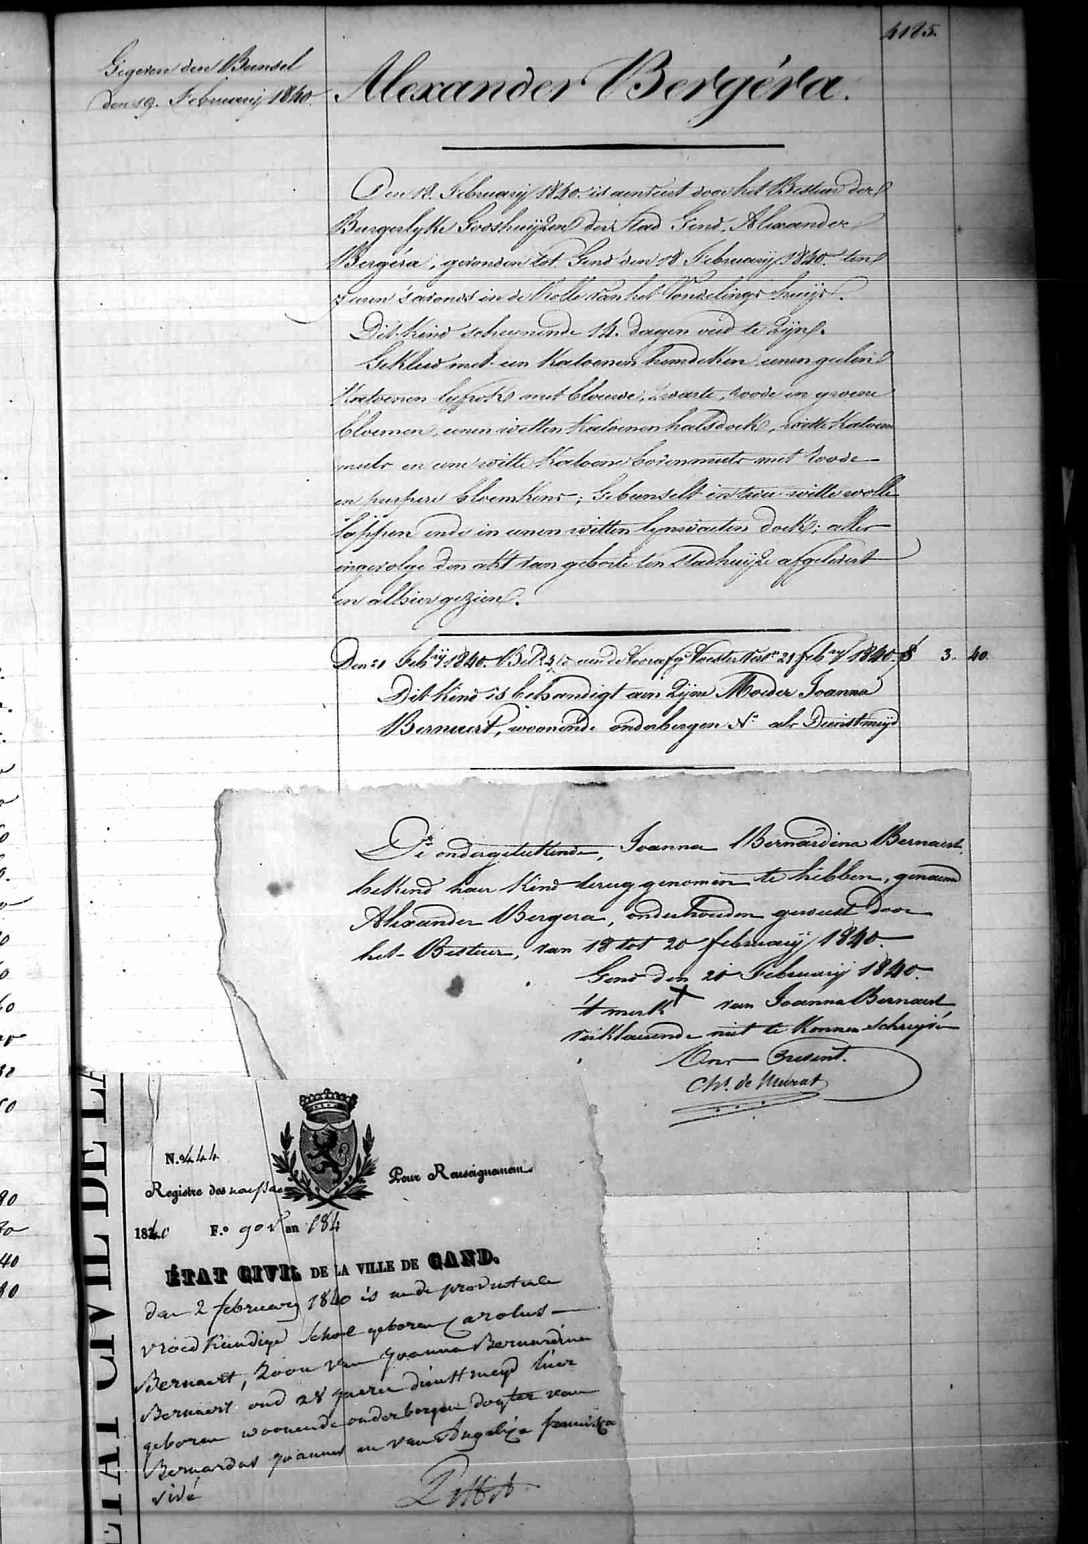 4185.
Gegeven den Bunsel
den 19. February 1840.
Alexander Bergéra.
Den 18. February 1840. is aenveert door het Bestier der
Burgerlyke Godshuijzen der Stad Gend, Alexander
Bergéra, gevonden tot Gend den 18 February 1840. ten
uren 's avonds in de Rolle van het Vondelings huijs.
Dit Kind schynende 14. dagen oud te zijn.
Gekleed met een Katoenen hemdeken eenen geelen
Katoenen lyfrok met blouwe, zwarte, roode en groene
bloemen, eenen witten Katoenen halsdoek, witte Katoene
muts en eene witte Katoene bovenmuts met roode
en purpere bloemkens; Gebunselt in twee witte wolle
lappen ende in eenen witten lynwaeten doek; alles
ingevolge den akt van geboorte ten stadhuijze afgelevert
en alhier gezien.
Den 21 Feb.ry 1840. 21 feb.ry 1840. 3. 40.
Dit Kind is behandigt aen zijne Moeder Joanna
Bernaert, woonende onderbergen N.º als Dienstmeijd
De ondergeteekende, Joanna Bernardina Bernaert,
bekend haer Kind terug genomen te hebben, genaemd
Alexander Bergera, onderhouden geweest door
het Bestier, van 18 tot 20 february 1840.
Gend den 20 February 1840.
't merk X van Joanna Bernaert
verklaerende niet te konnen schryven
Present.
Ch. de
N.º 444
Registre des naissances
Pour Renseignement
1840 F.º 90 v an 184
ÉTAT CIVIL DE LA VILLE DE GAND.
den 2 february 1840 is in de provintiale
vroedkundige School geboren Carolus
Bernaert, zoon van Joanna Bernardina
Bernaert oud 28 jaeren dienstmeyd hier
geboren woonende onderbergen dogter van
Bernardus Joannes en van Angelica francisca
ÉTAT CIVIL DE LA